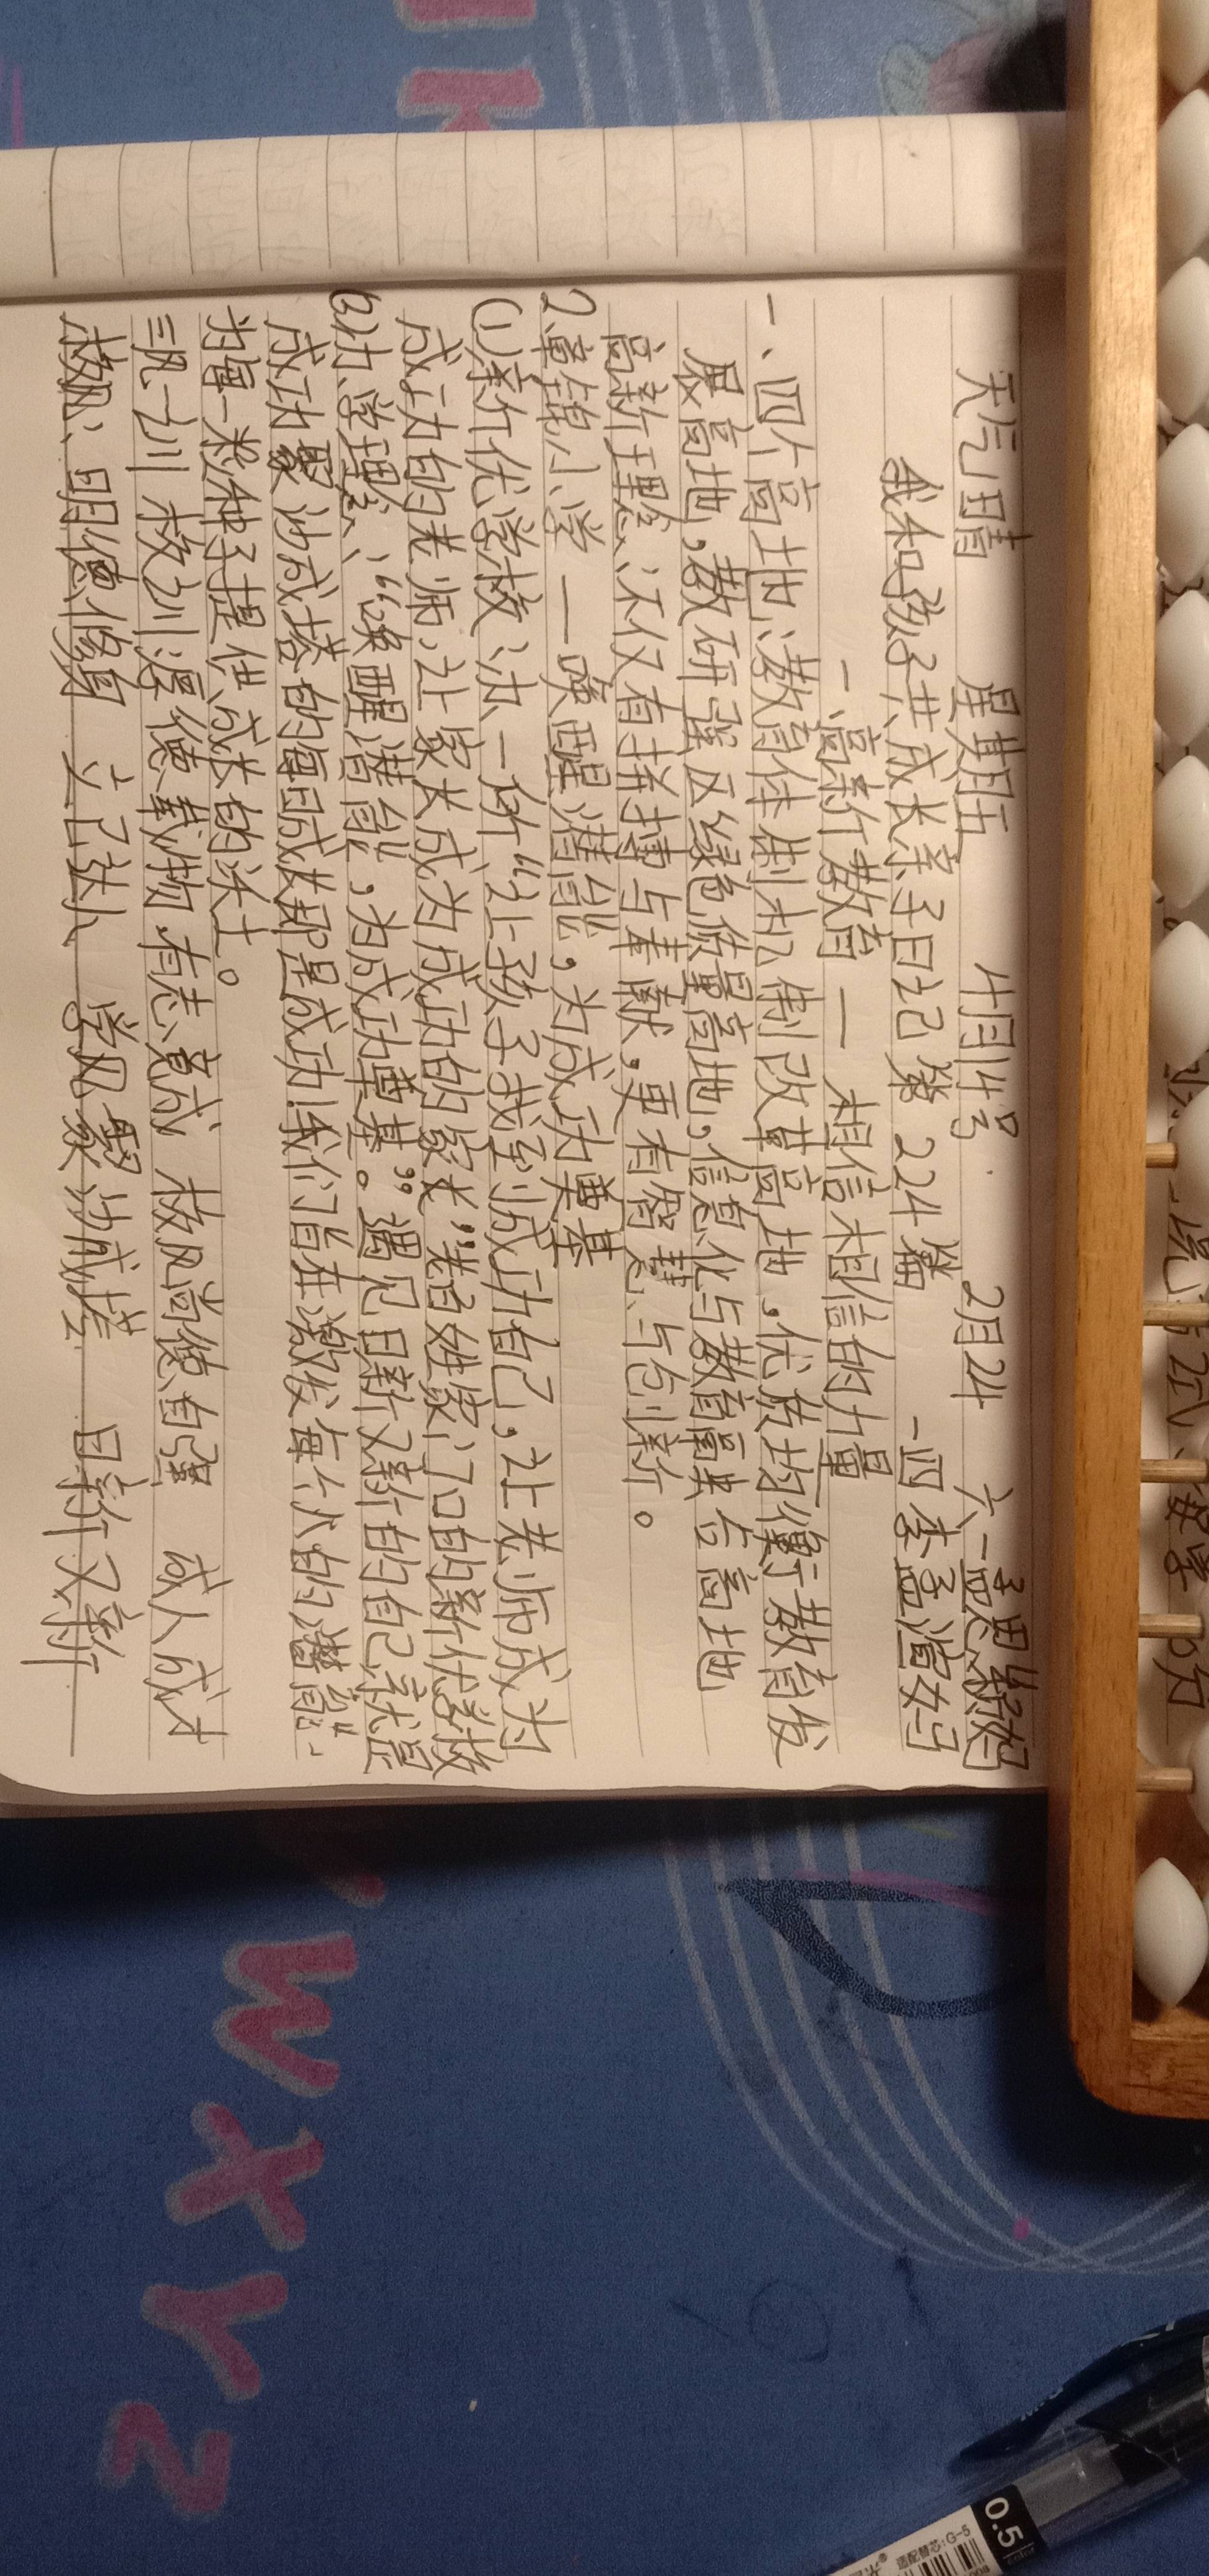 天气晴 星期五 14号 2月24 六一孟思颖妈
我和孩子共成长亲子日记 第224篇 一四李孟澶妈
一高新教育 — 相信相信的力量
一、四个高地:教育体制机制改革高地,优质均衡教育发
展高地,教研强区绿色质量高地,信息化与教育深度融合高地
高新理念:不仅有拼搏与奉献,更有智慧与创新。
2.章锦小学 — 唤醒潜能,为成功奠基
(1)新优学校:办一所“让孩子找到成功自己,让老师成为
成功的老师,让家长成为成功的家长”的家门口的新优学校
(2)办学理念:“唤醒潜能,为成功奠基。”遇见日新又新的自己就是
成功,聚沙成塔的每日成长都是成功!我们旨在激发每个人的潜能,
为每一粒种子提供成长的沃土。
三风一训 校训:厚德载物 有志竟成 校风:尚德自强 成人成才
教风:明德修身 立己达人 学风:聚沙成塔 日新又新
W
X
Y
Z
0.5
适配替芯:G-5